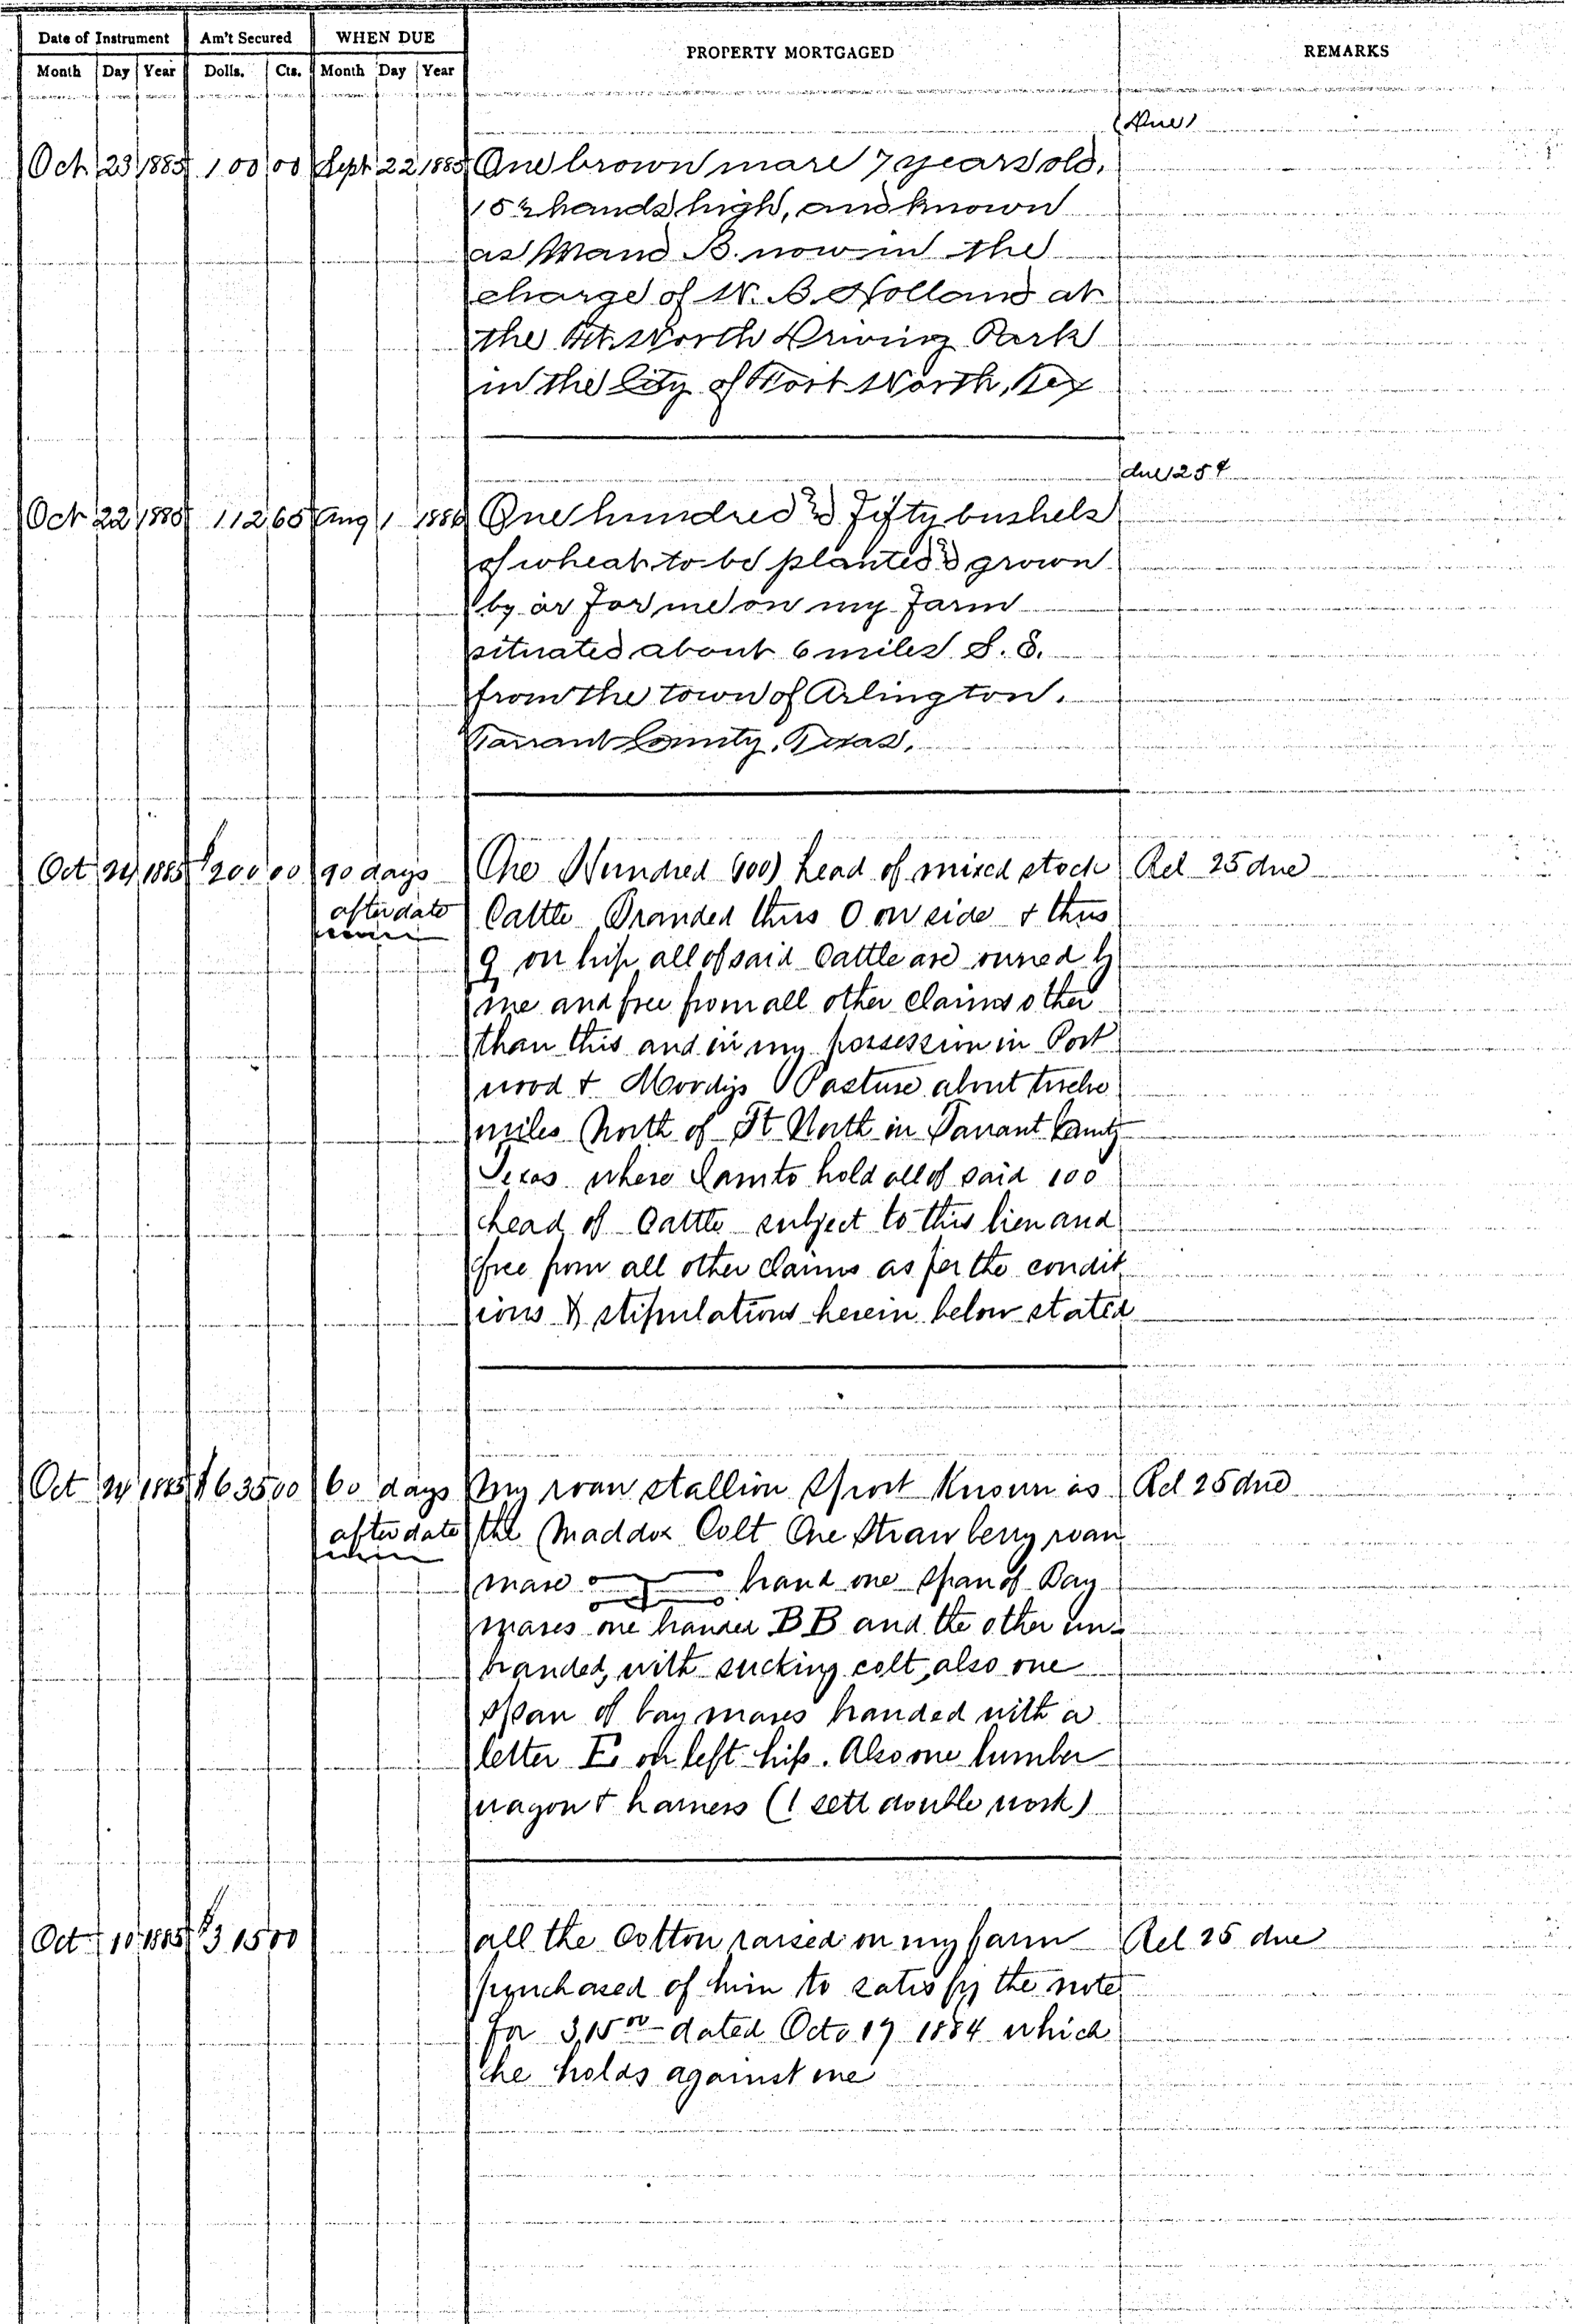 Date of Instrument Am't Secured WHEN DUE PROPERTY MORTGAGED REMARKS
Month Day Year Dolls. Cts. Month Day Year
due
Oct 23 1885 100 00 Sept 22 1885 One brown mare 7 years old,
15½ hands high, and known
as Maud B. now in the
charge of W. B. Holland at
the Ft. Worth Driving Park
in the City of Fort Worth, Tex
due 25¢
Oct 22 1885 112 65 Aug 1 1886 One hundred & Fifty bushels
of wheat to be planted & grown
by or for me on my farm
situated about 6 miles S. E.
from the town of Arlington,
Tarrant County, Texas.
Oct 24 1885 $200 00 90 days One Hundred (100) head of mixed stock Rel 25 due
after date Cattle Branded thus O on side & thus
9 on hip all of said Cattle are owned by
me and free from all other claims other
than this and in my possession in Port
wood & Mordys Pasture about twelve
miles North of Ft Worth in Tarrant County
Texas where I am to hold all of said 100
head of Cattle subject to this lien and
free from all other claims as per the condit
ions & stipulations herein below stated
Oct 24 1885 $635 00 60 days My roan stallion Sport Known as Rel 25 due
after date the Maddox Colt One Strawberry roan
mare brand one span of Bay
mares one branded BB and the other un-
branded, with sucking colt, also one
span of bay mares branded with a
letter E on left hip. Also one lumber
wagon & harness (1 sett double work)
Oct 10 1885 $315 00 all the Cotton raised on my farm Rel 25 due
purchased of him to satisfy the note
for 315 00 dated Octo 19 1884 which
he holds against me